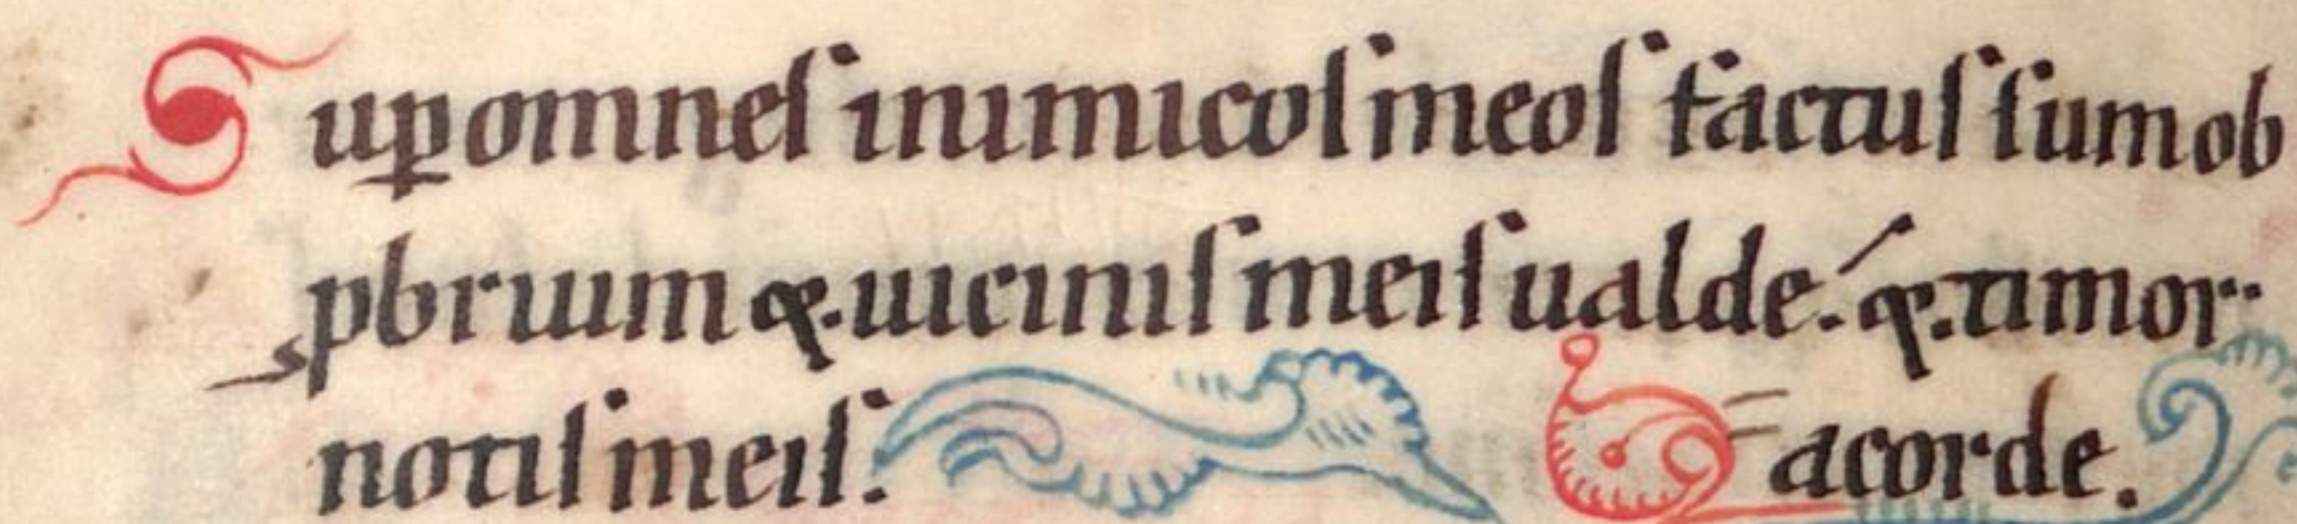 Suꝑ omneſ inimicoſ meoſ factuſ ſum ob
ꝓbrium &uiciniſ meiſ ualde. &timor
notiſ meiſ. a corde.